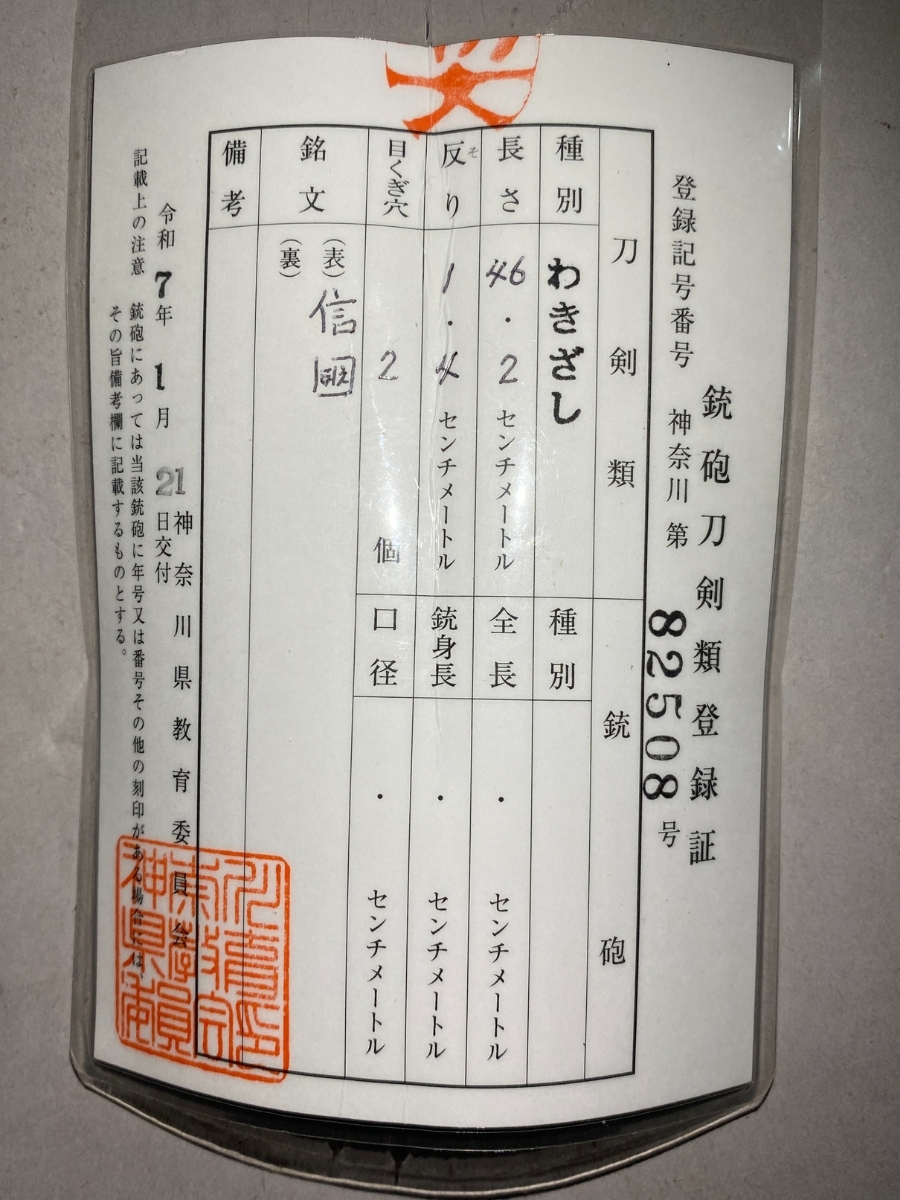 銃砲刀剣類登録証
登録記号番号 神奈川 第 82508 号
刀剣類
種別 わきざし
長さ 46.2 センチメートル
反り 1.4 センチメートル
そ
目くぎ穴 2 個
銘文 (表) 信國
(裏)
備考
銃砲
種別
全長 ・ センチメートル
銃身長 ・ センチメートル
口径 ・ センチメートル
令和7年1月21日交付
神奈川県教育委員会
記載上の注意 銃砲にあっては当該銃砲に年号又は番号その他の刻印がある場合には、
その旨備考欄に記載するものとする。